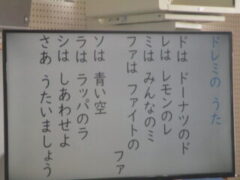 ドレミの うた
ドは ドーナツのド
レは レモンのレ
ミは みんなのミ
ファは ファイトの ファ
ソは 青い空
ラは ラッパのラ
シは しあわせよ
さあ うたいましょう